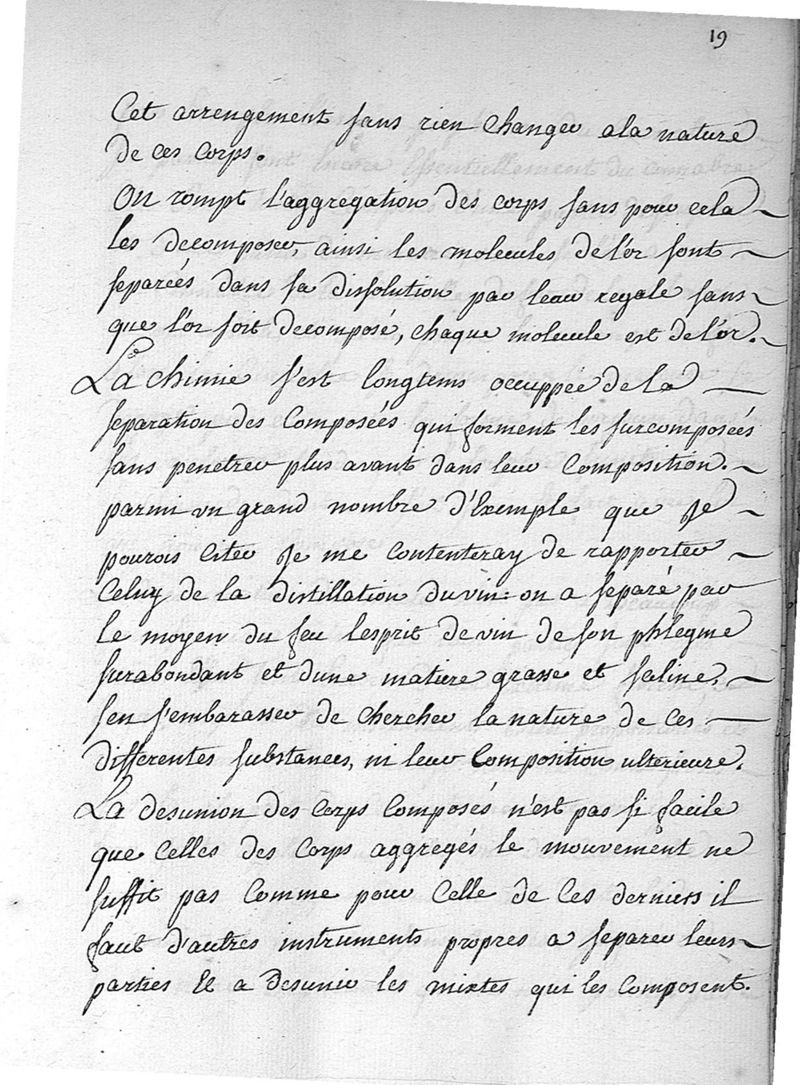 19
Cet arrengement sans rien changer a la nature
de ces corps.
On rompt l'aggregation des corps sans pour cela
les decomposer, ainsi les molecules de l'or sont
separeés dans sa dissolution par leau regale sans
que l'or soit decomposé, chaque molecule est de l'or.
La chimie s'est longtems occuppée de la
separation des Composeés qui forment les surcomposeés
sans penetrer plus avant dans leur Composition.
parmi un grand nombre d'Exemple que je
pourois Citer je me Contenteray de rapporter
Celuy de la distillation du vin: on a separé par
le moyen du feu lesprit de vin de son phlegme
surabondant et dune matiere grasse et saline,
sen s'embarasser de chercher la nature de Ces
differentes substances, ni leur Composition ulterieure.
La desunion des Corps Composés n'est pas si facile
que Celles des Corps aggregés le mouvement ne
suffit pas Comme pour Celle de Ces derniers il
faut d'autres instruments propres a separer leurs
parties Et a Desunir les mixtes qui les Composent.